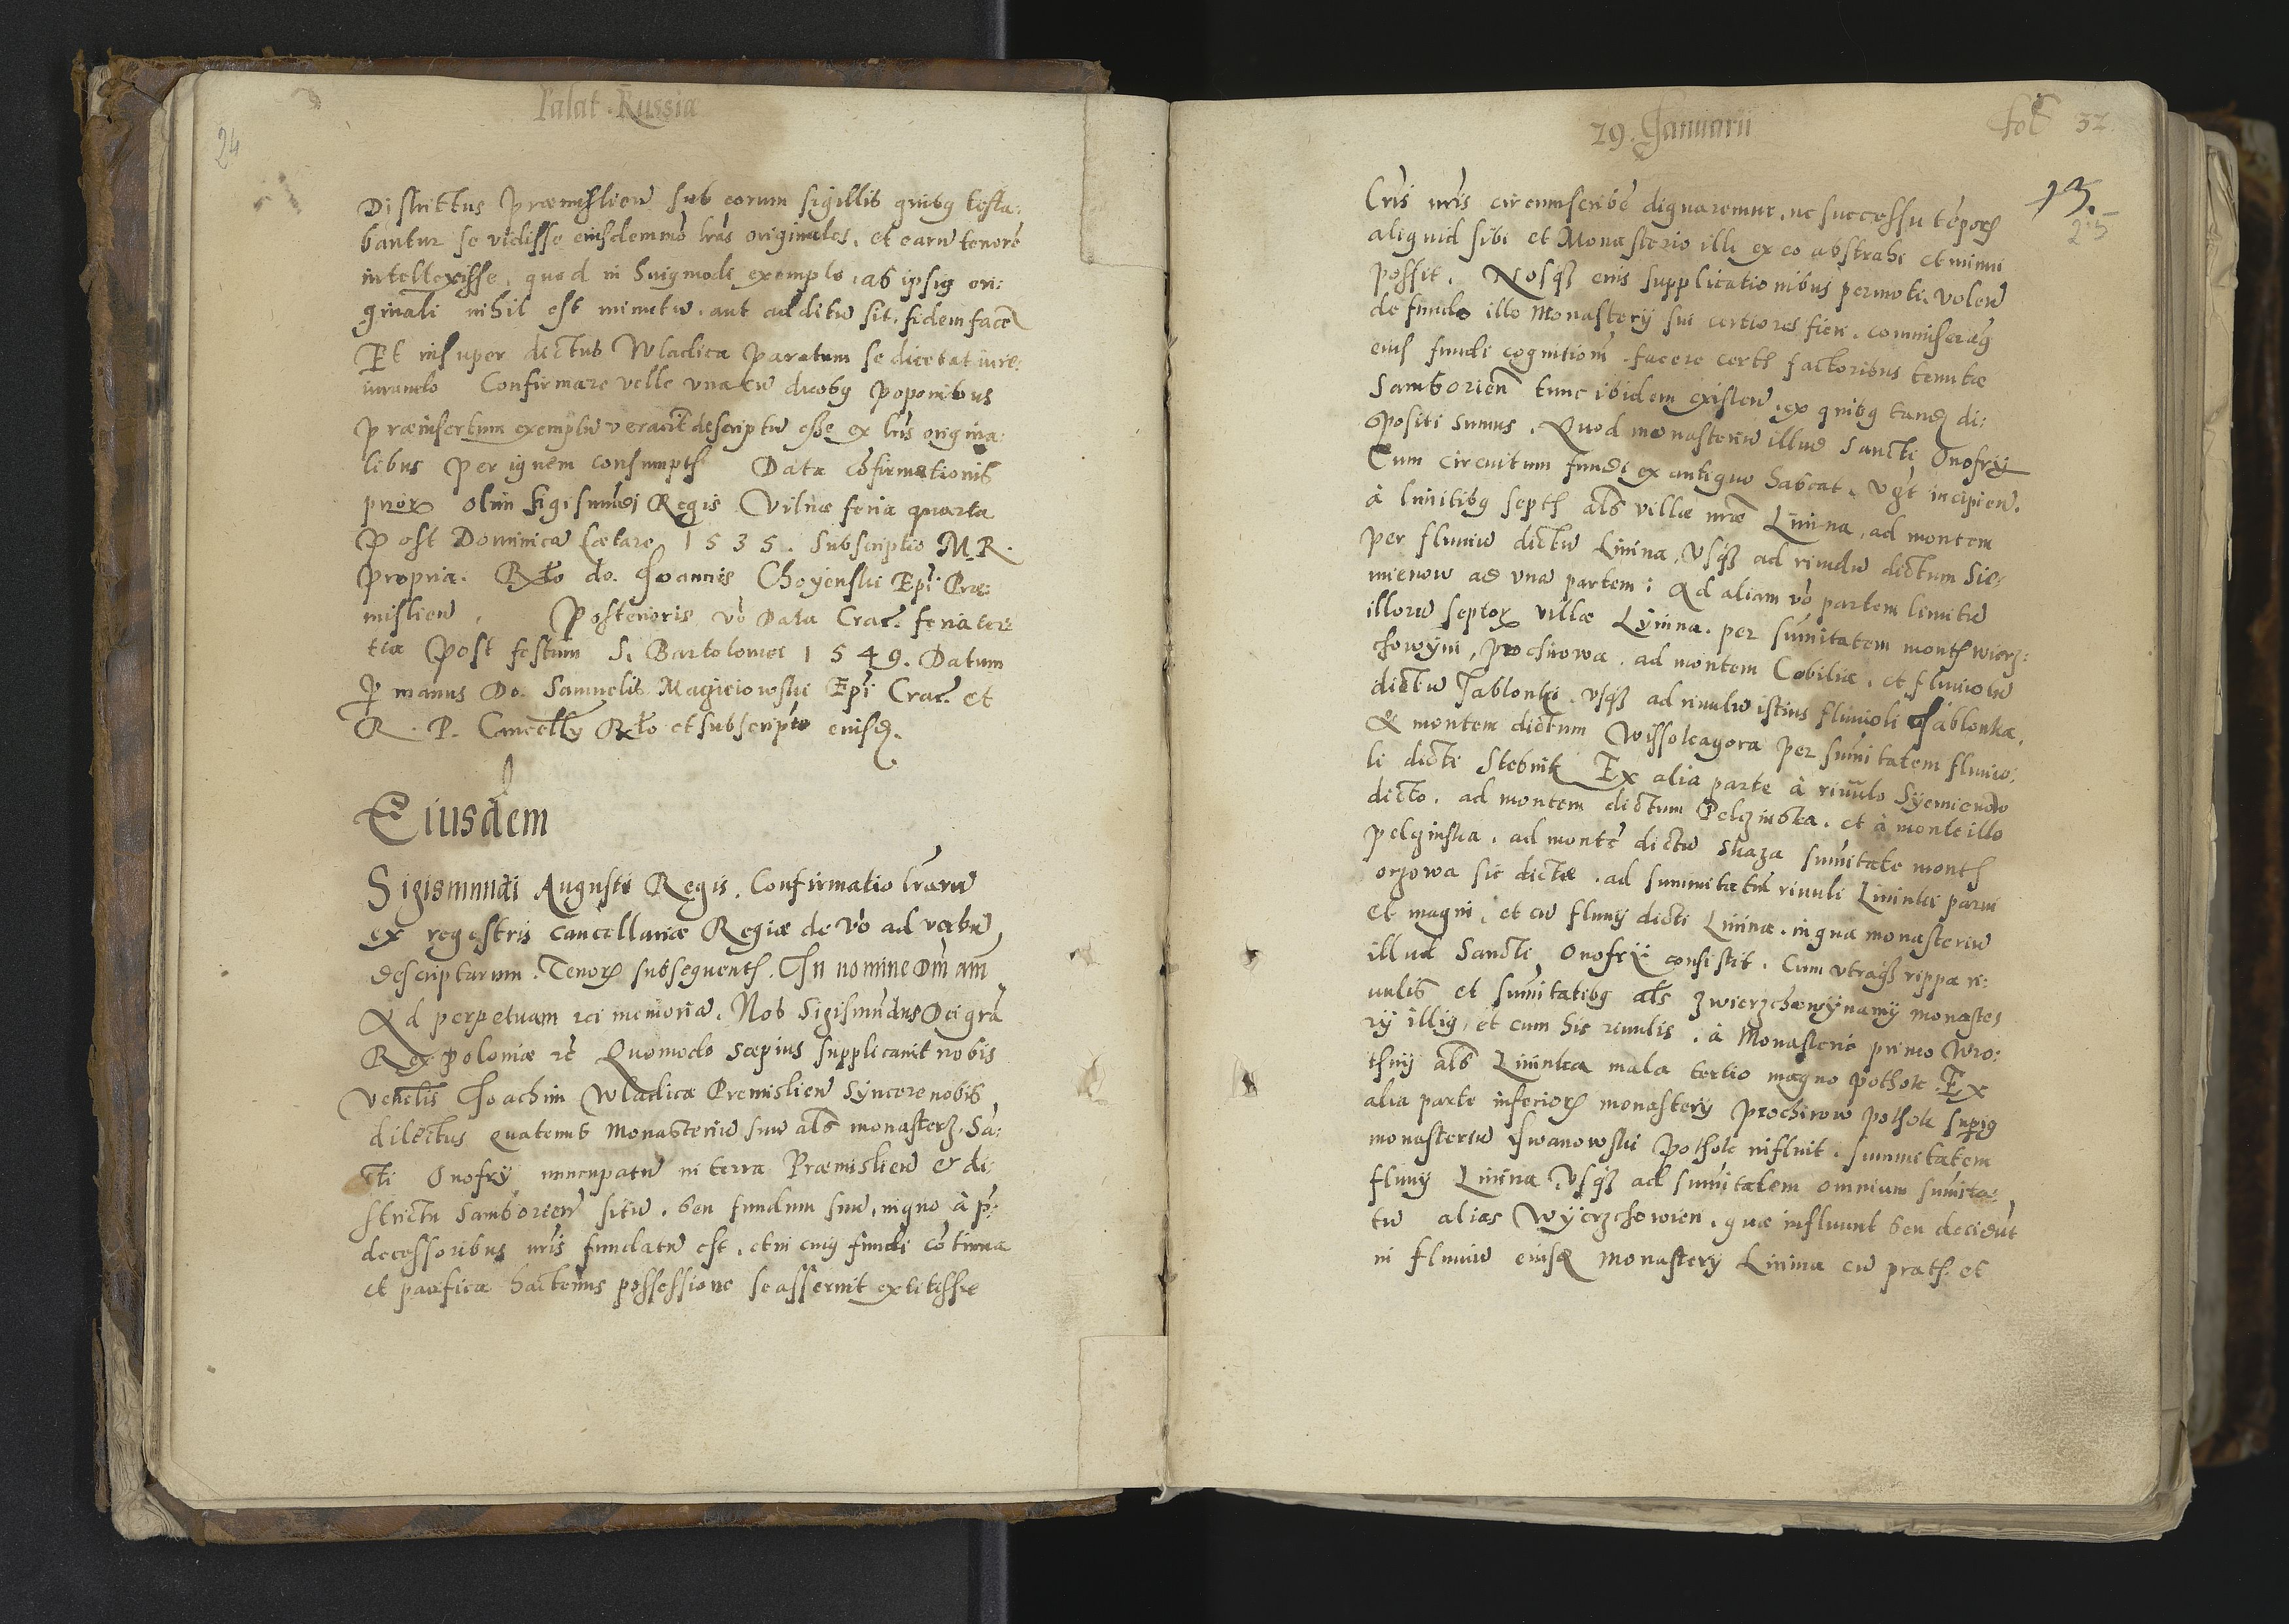 Palat. Russiæ
24
Districtus Præmislień sub eorum sigillis quibq testa:
bantur se vidisse eiusdemmō lrās originales. et earū tenorē
intellexisse. quod in huigmodi exemplo, ab ipsig ori:
ginali nihil est minutū. aut additū sit. fidem facē
Et insuper dictus Wladica paratum se dicebat iure:
iurando Confirmare velle vna cū duobq poponibus
præinsertum exemplū veracit descriptū esse ex lrīs origina:
libus per ignem consumptis Data cōfirmationis
prior olim Sigismūdi Regis Vilnæ feria quarta
Post Dominicā Lætare 1535. Subscriptio M. R.
propria. Rłto do. Joannis Choyenski Epī Præ:
mislień. Posterioris vō Data Crač. feria ter:
tia post festum S. Bartolomei 1549. Datum
P manus Do. Samuelis Magieiowski Epī Crač. et
R. P. Cancellȳ Rłto et subscripto eiusd.
Eiusdem
Sigismundi Augusti Regis. Confirmatio lrārū
ex regestris cancellariæ Regiæ de vō ad verbū
descriptarum. Tenor subsequentis. In nomine Dm̄ am̄
Ad perpetuam rei memoriā. Nos Sigismūdus Dei grā
Rex Poloniæ rc̄ Quomodo sæpius supplicauit nobis
Venelis Joachim Wladica Premislień syncere nobis
dilectus quatenus Monasteriū suū als monasterz. Sā:
cti Onofrȳ nuncupatū in terra Præmislień & di:
strictu Samborień sitū. seu fundum suū, in quo à p̄:
decessoribus nr̄is fundatū est, et in cuig fundi cōtinua
et pacifica hactenus possessione se asseruit extitisse
29. Januarii
fol 32.
13.
25
Lrīs nr̄is circumscribe dignaremur. ne successu tēporis
aliquid sibi et Monasterio illi ex eo abstrahi et minui
possit. Nosq eius supplicationibus permoti. volen̄
de fundo illo Monasterȳ sui certiores fieri. commiserāg
eius fundi cognitionē facere certis factoribus tenutæ
Samborień tunc ibidem existen̄. ex quibq tandē di:
spositi sumus. Quod monasteriū illud Sancti Onofrȳ
Eum circuitum fundi ex antiquo habeat. vzt incipien̄.
à limitibq septis als villæ nræ Linina, ad montem
per fluuiū dictū Linina, Vsq ad riuulū dictum Sie:
mienow ad vnā partem: Ad aliam vō partem limitū
illorū septor villæ Lynina. per sum̄itatem montis wierz:
chowȳni, Prochnowa. ad montem Cobiliæ. et fluuiolū
dictū Jablonki. vsq ad riuulū istius fluuioli Jablonka.
& montem dictum Wissokagora per sum̄itatem fluuio:
li dicti Stebnik Ex alia parte à riuulo Sȳemienow
dicto. ad montem dictum Pelzinska. et à monte illo
pelzinska. ad montē dictū Skaza sum̄itate montis
orzowa sic dictæ. ad summitatem riuuli Lininki parui
et magni, et cū fluuȳ dicti Lininæ. in qua monasteriū
illud Sancti Onofrȳ consistit. Cum vtraq rippa ri:
uulis et sum̄itatibq als zwierzchowȳnamȳ monaste:
rȳ illig, et cum his riuulis. à Monasterio primo Wro:
thnȳ als Lininka mala tertio magno pothok. Ex
alia parte inferior monasterȳ Prochirow pothok supig
monasteriū Iwanowski pothok influit. summitatem
fluuȳ Linina, Vsq ad sum̄itatem omnium sum̄ita:
tū alias Wȳerzchowien. quæ influunt seu decidūt
in fluuiū eiusd Monasterȳ Linina cū pratis. et